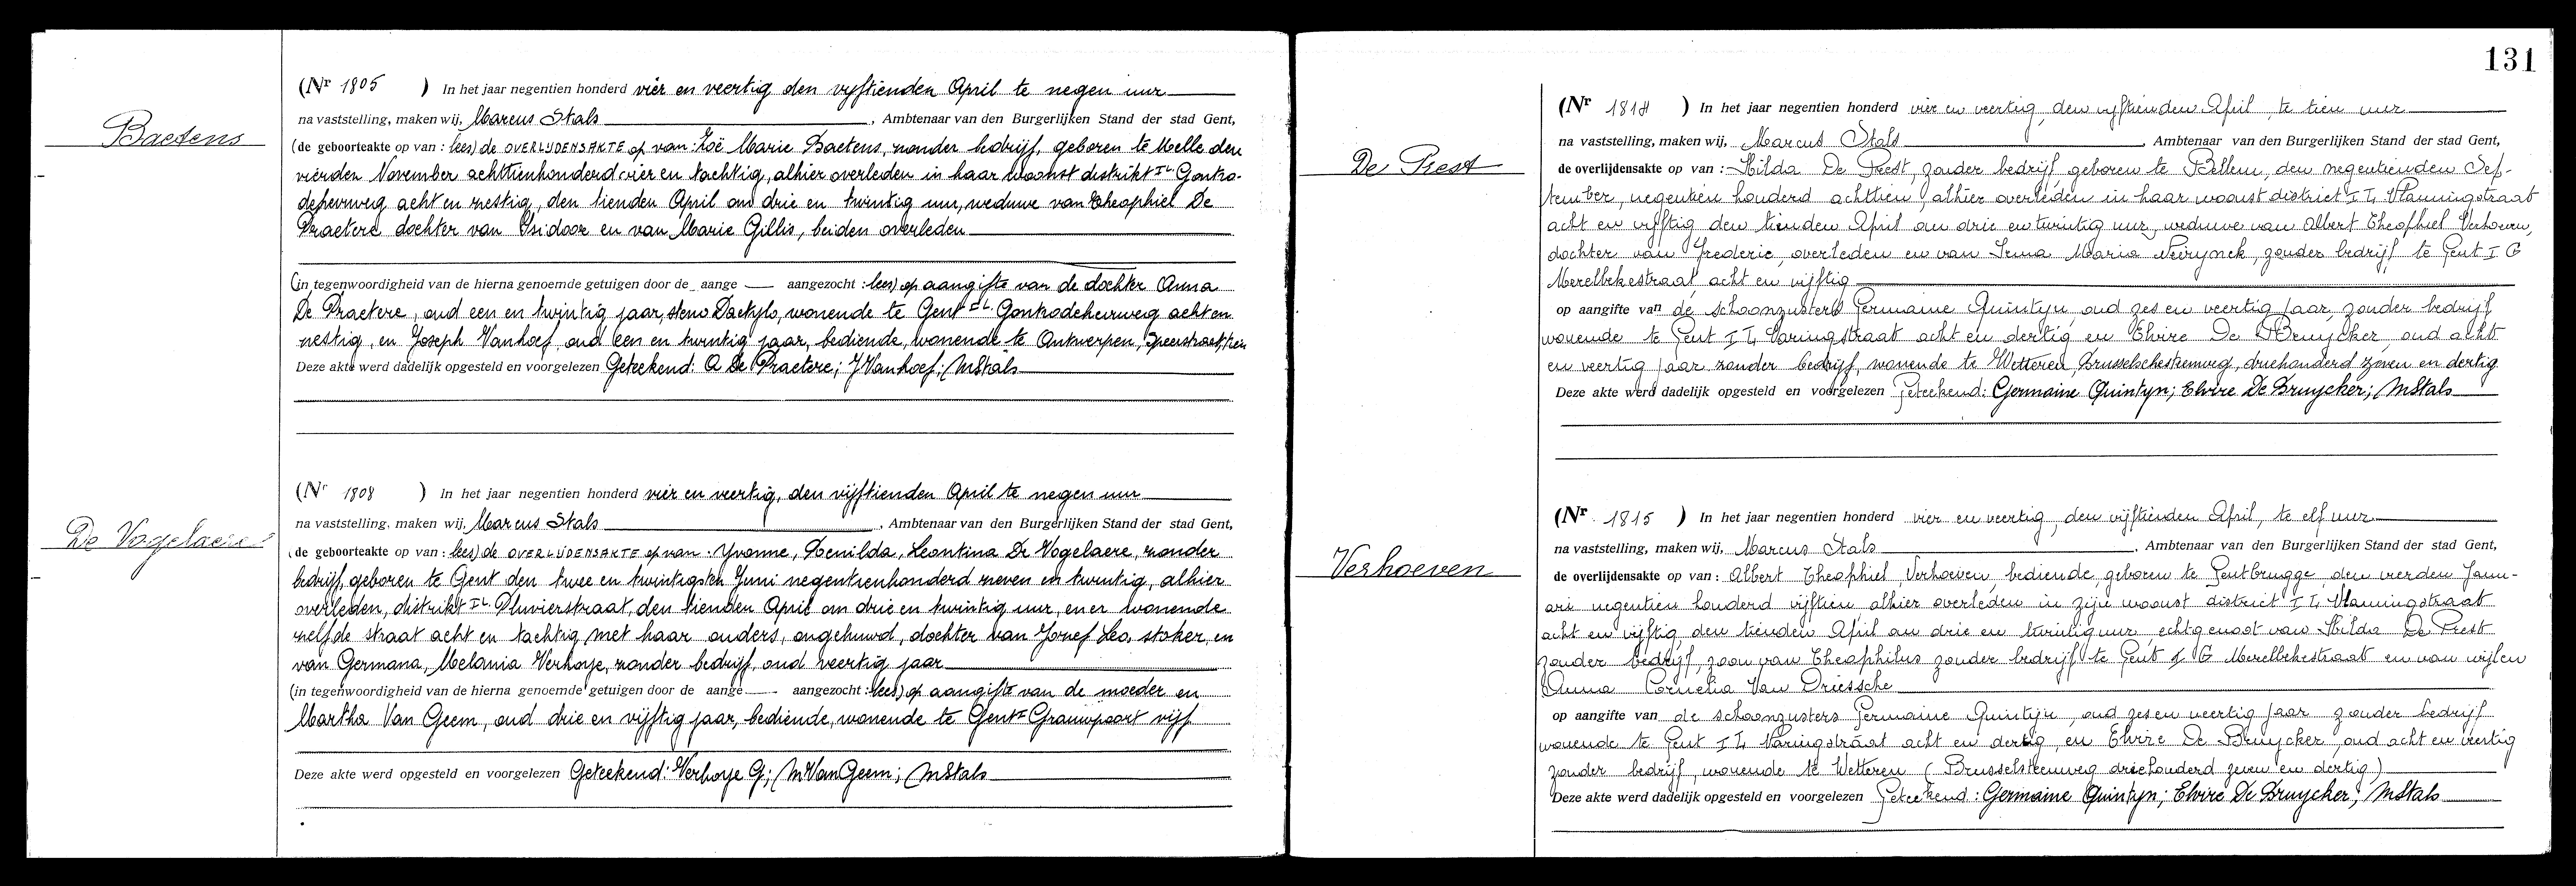 Baetens
(Nr 1805 ) In het jaar negentien honderd vier en veertig den vyftienden April te negen uur
na vaststelling, maken wij, Marcus Stals, Ambtenaar van den Burgerlijken Stand der stad Gent,
(de geboorteakte op van : lees) de OVERLIJDENSAKTE op van : Zoë Marie Baetens, zonder bedrijf, geboren te Melle den
vierden November achttienhonderd vier en tachtig, alhier overleden in haar woonst distrikt I L. Gontro-
deheerweg acht en zestig, den tienden April om drie en twintig uur, weduwe van Theophiel De
Praetere dochter van Isidoor en van Marie Gillis, beiden overleden
(in tegenwoordigheid van de hierna genoemde getuigen door de aange — aangezocht : lees) op aangifte van de dochter Anna
De Praetere, oud een en twintig jaar, steno Dactylo, wonende te Gent I L. Gontrodeheerweg acht en
zestig, en Joseph Vanhoef, oud een en twintig jaar, bediende, wonende te Antwerpen,
Deze akte werd dadelijk opgesteld en voorgelezen Geteekend: A De Praetere; J Vanhoef; MStals
De Vogelaere
(Nr 1808 ) In het jaar negentien honderd vier en veertig, den vijftienden April te negen uur
na vaststelling, maken wij, Marcus Stals, Ambtenaar van den Burgerlijken Stand der stad Gent,
(de geboorteakte op van : lees) de OVERLIJDENSAKTE op van : Yvonne, Zenilda, Leontina De Vogelaere, zonder
bedrijf, geboren te Gent den twee en twintigsten Juni negentienhonderd zeven en twintig, alhier
overleden, distrikt I L. Pluvierstraat, den tienden April om drie en twintig uur, en er wonende
zelfde straat acht en tachtig, met haar ouders, ongehuwd, dochter van Jozef Leo, stoker, en
van Germana, Melania Verhoye, zonder bedrijf, oud veertig jaar
(in tegenwoordigheid van de hierna genoemde getuigen door de aange — aangezocht : lees) op aangifte van de moeder en
Martha Van Geem, oud drie en vijftig jaar, bediende, wonende te Gent I Grauwpoort vijf
Deze akte werd opgesteld en voorgelezen Geteekend: Verhoye G; M VanGeem; MStals
131
De Prest
(Nr 1814 ) In het jaar negentien honderd vier en veertig, den vijftienden April, te tien uur
na vaststelling, maken wij, Marcus Stals, Ambtenaar van den Burgerlijken Stand der stad Gent,
de overlijdensakte op van : Hilda De Prest, zonder bedrijf, geboren te Bellem, den negentienden Sep-
tember, negentien honderd achttien, alhier overleden in haar woonst district I L, Vlamingstraat
acht en vijftig den tienden April om drie en twintig uur, weduwe van Albert Theophiel Verhoeven,
dochter van Frederic, overleden en van Irma Maria Neirynck, zonder bedrijf, te Gent I G
Merelbekestraat acht en vijftig
op aangifte van de schoonzusters Germaine Quintyn, oud zes en veertig jaar, zonder bedrijf
wonende te Gent I L, Varingstraat acht en dertig en Elvire De Bruycker, oud acht
en veertig jaar zonder bedrijf, wonende te Wetteren, Brusselschesteenweg, driehonderd zeven en dertig
Deze akte werd dadelijk opgesteld en voorgelezen Geteekend: Germaine Quintyn; Elvire De Bruycker; MStals
Verhoeven
(Nr. 1815 ) In het jaar negentien honderd vier en veertig, den vijftienden April, te elf uur
na vaststelling, maken wij, Marcus Stals, Ambtenaar van den Burgerlijken Stand der stad Gent,
de overlijdensakte op van : Albert Theophiel Verhoeven, bediende, geboren te Gentbrugge den vierden Janu-
ari negentien honderd vijftien alhier overleden in zijn woonst district I L, Vlamingstraat
acht en vijftig, den tienden April om drie en twintig uur, echtgenoot van Hilda De Prest
zonder bedrijf, zoon van Theophilus zonder bedrijf te Gent I G Merelbekestraat en van wijlen
Anna Cornelia Van Driessche
op aangifte van de schoonzusters Germaine Quintijn, oud zes en veertig jaar zonder bedrijf
wonende te Gent I L, Varingstraat acht en dertig, en Elvire De Bruycker, oud acht en veertig
zonder bedrijf, wonende te Wetteren (Brusselsteenweg driehonderd zeven en dertig)
Deze akte werd dadelijk opgesteld en voorgelezen Geteekend: Germaine Quintyn; Elvire De Bruycker; MStals